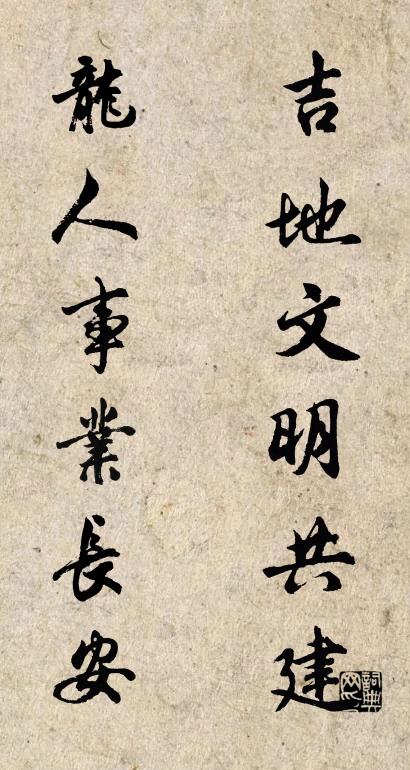 吉地文明共建
龍人事業長安